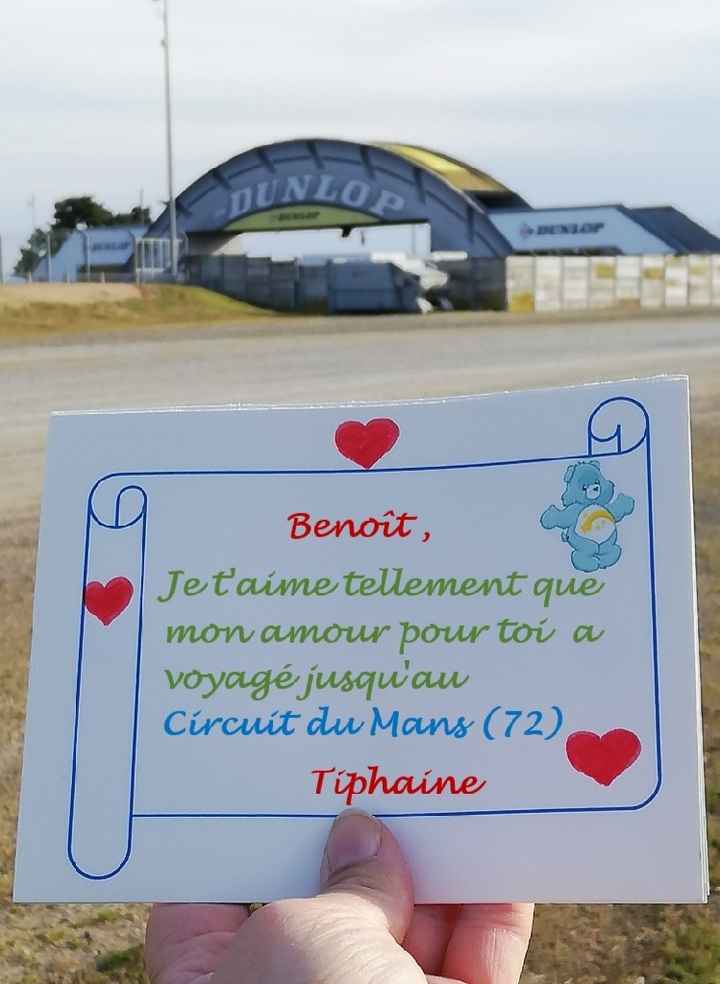 DUNLOP
DUNLOP
DUNLOP
DUNLOP
Benoît ,
Je t'aime tellement que
mon amour pour toi a
voyagé jusqu'au
Circuit du Mans (72)
Tiphaine